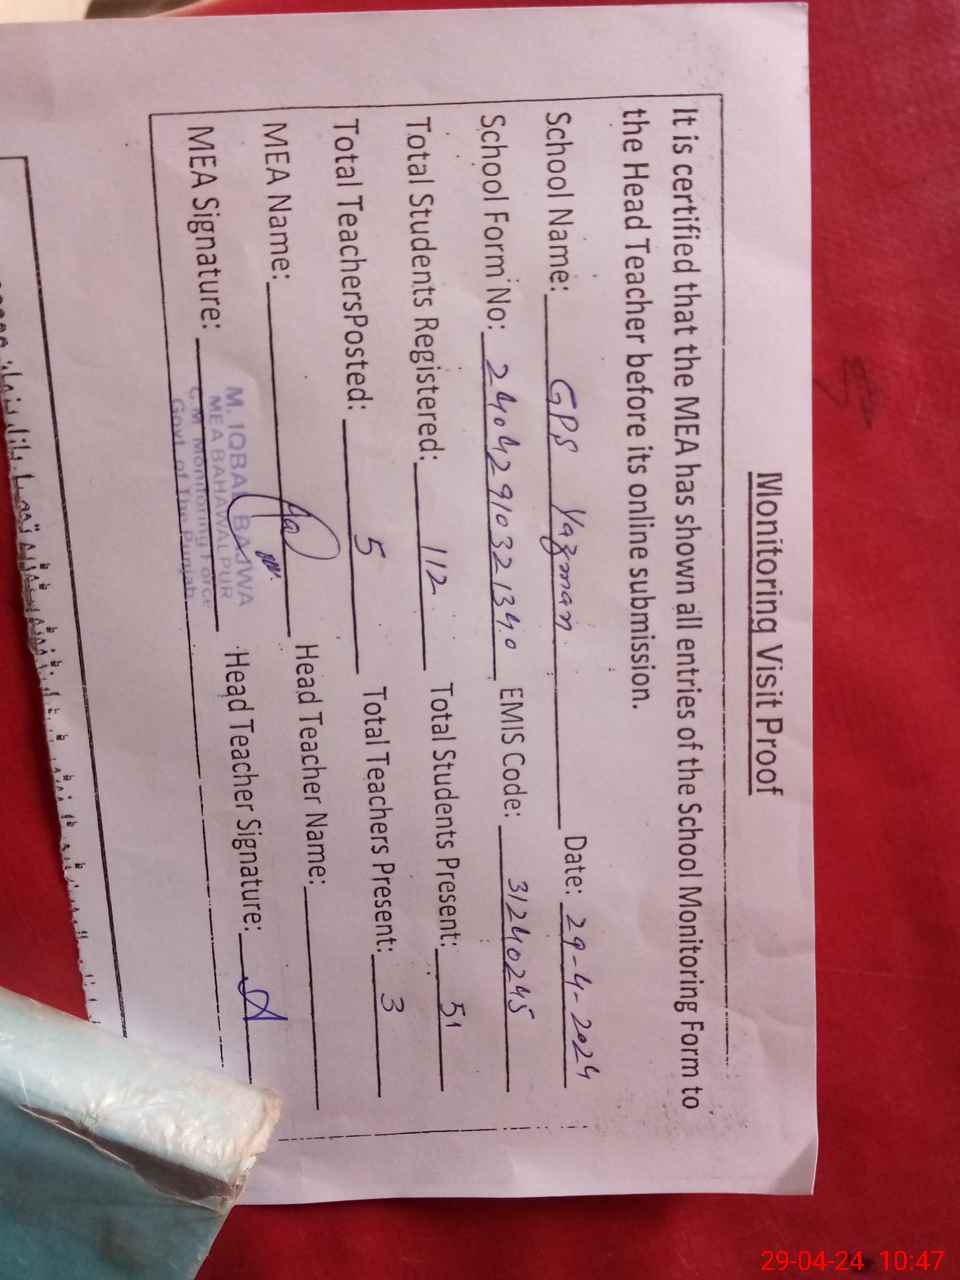 Monitoring Visit Proof
It is certified that the MEA has shown all entries of the School Monitoring Form to
the Head Teacher before its online submission.
School Name: GPS Yazman Date: 29-4-2024
School Form No: 24042910321340 EMIS Code: 31240245
Total Students Registered: 112 Total Students Present: 51
Total TeachersPosted: 5 Total Teachers Present: 3
MEA Name: Head Teacher Name:
MEA Signature: Head Teacher Signature:
M. IQBAL BAJWA
MEA BAHAWALPUR
C.M Monitoring Force
Govt of The Punjab
29-04-24 10:47